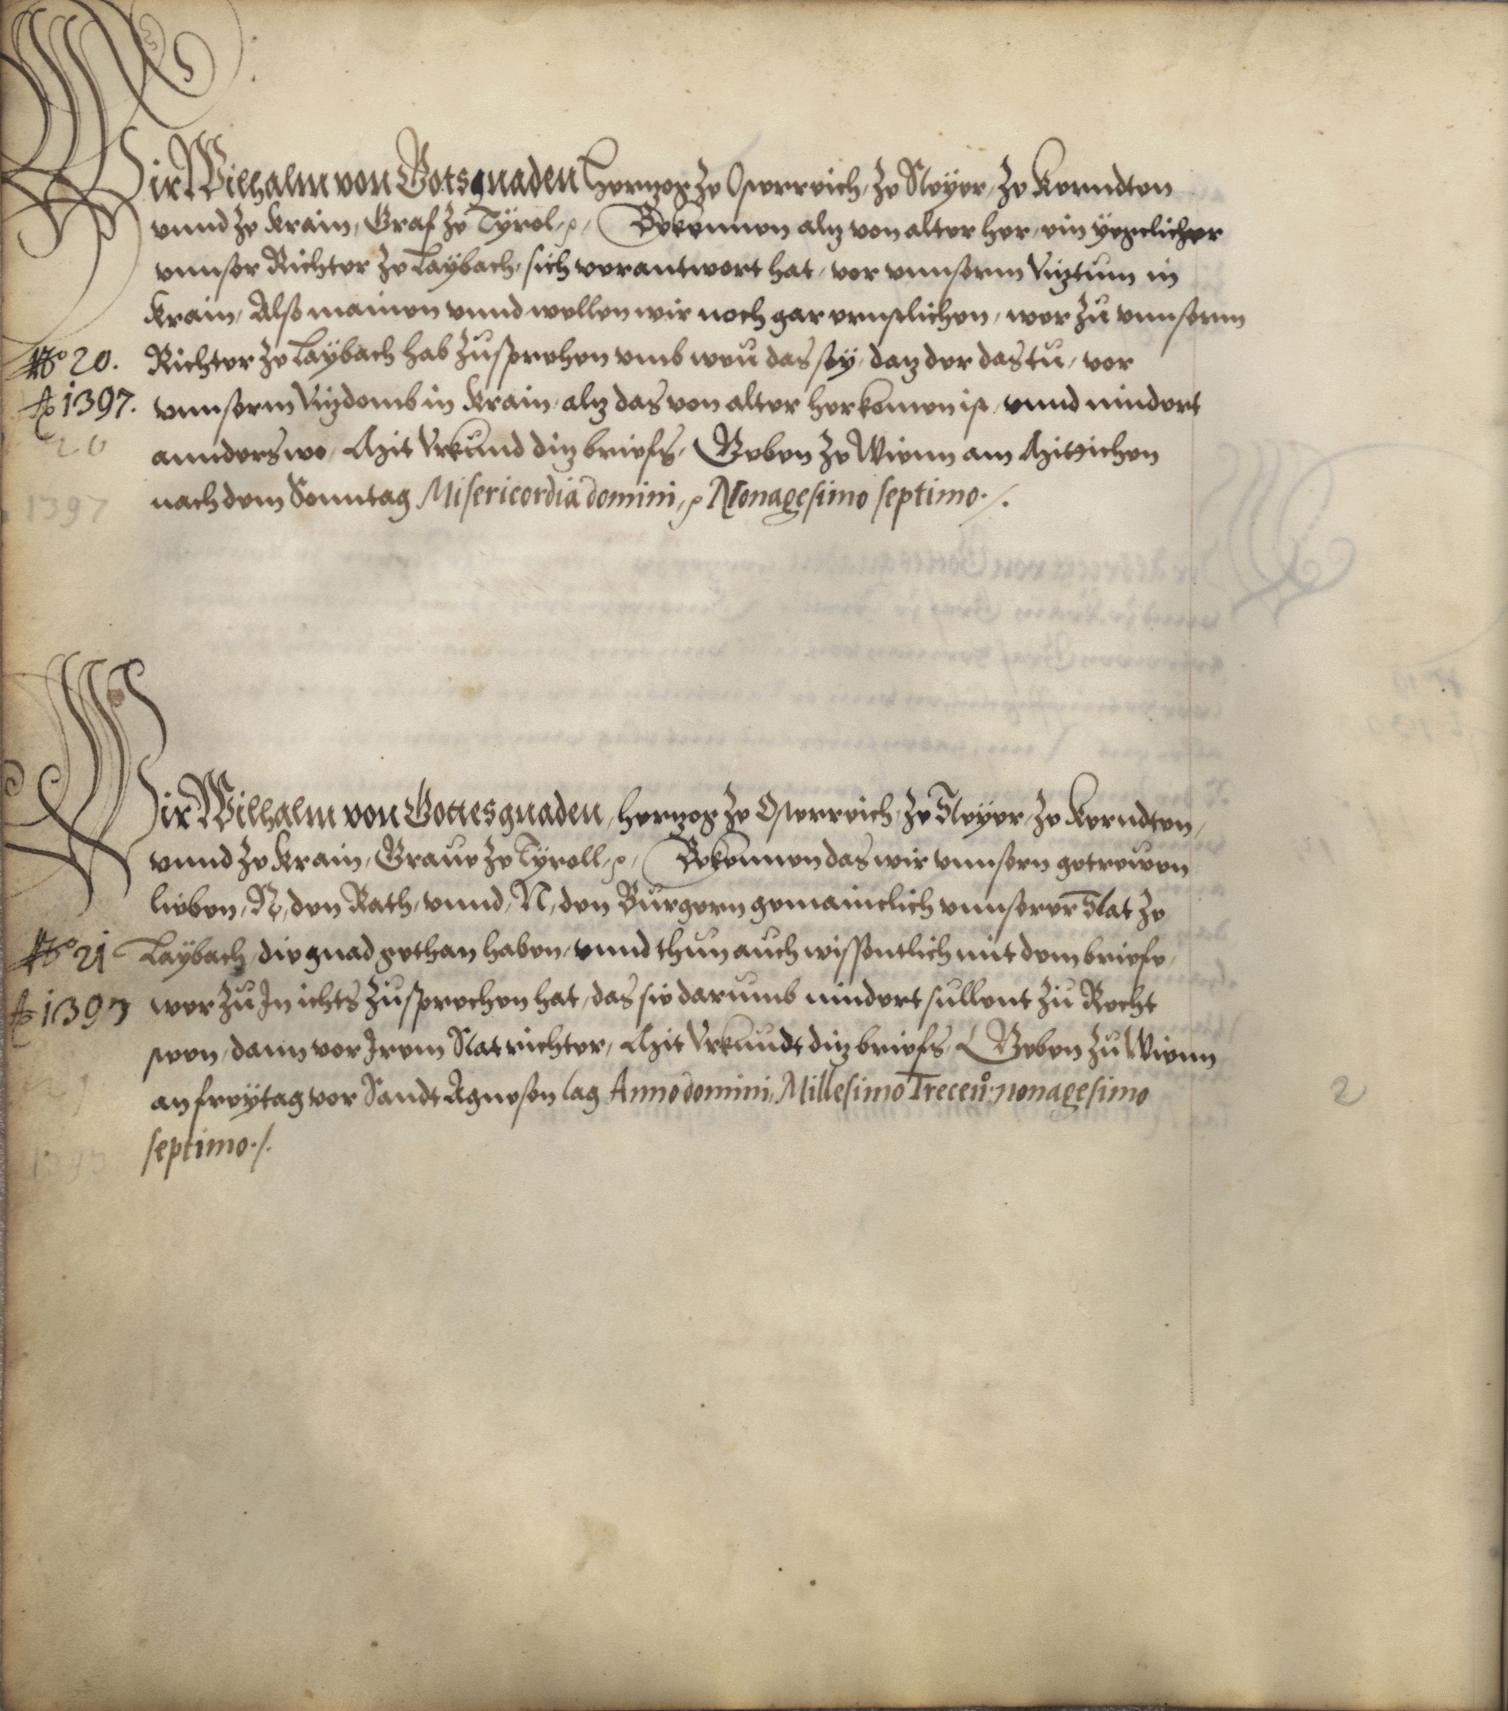 Wir Wilhalm von Gotsgnaden Hertzog Ze Osterreich, Ze Steyer, Ze Kerndten
vnnd Ze Krain, Graf Ze Tyrol, Bekennen alz von alter her, ein yegclicher
vnnser Richter Ze Laybach, sich verantwort hat, vor vnnserm Viztum in
Krain, Also mainen vnnd wellen wir noch gar ernstlichen, wer Zu vnnserm
No 20. Richter Ze Laybach hab Zusprehen vmb weu das sey, daz der das tu, vor
Ao 1397. vnnserm Vizdomb in Krain, alz das von alter herkomen ist, vnnd nindert
20 annderswo, Mit Vrkund diz briefs, Geben Ze Wienn am Mittichen
1397 nach dem Sonntag Misericordia domini, Nonagesimo septimo./.
Wir Wilhalm von Gottesgnaden, hertzog Ze Osterreich, Ze Steyer, Ze Kerndten,
vnnd Ze Krain, Graue Ze Tyroll, Bekennen das wir vnnsern getrewen
lieben, N, den Rath, vnnd, N, den Burgern gemainclich vnnserer Stat Ze
No 21 Laybach, die gnad gethan haben, vnnd thun auch wissentlich mit dem briefe,
Ao 1397 wer Zu In ichts Zusprechen hat, das sie darumb nindert sullent Zu Recht
sten, dann vor Irem Statrichter, Mit Vrkundt diz briefs, Geben Zu Wienn
an freytag vor Sandt Agnesen tag Anno domini, Millesimo Trecen: nonagesimo
septimo./.
2